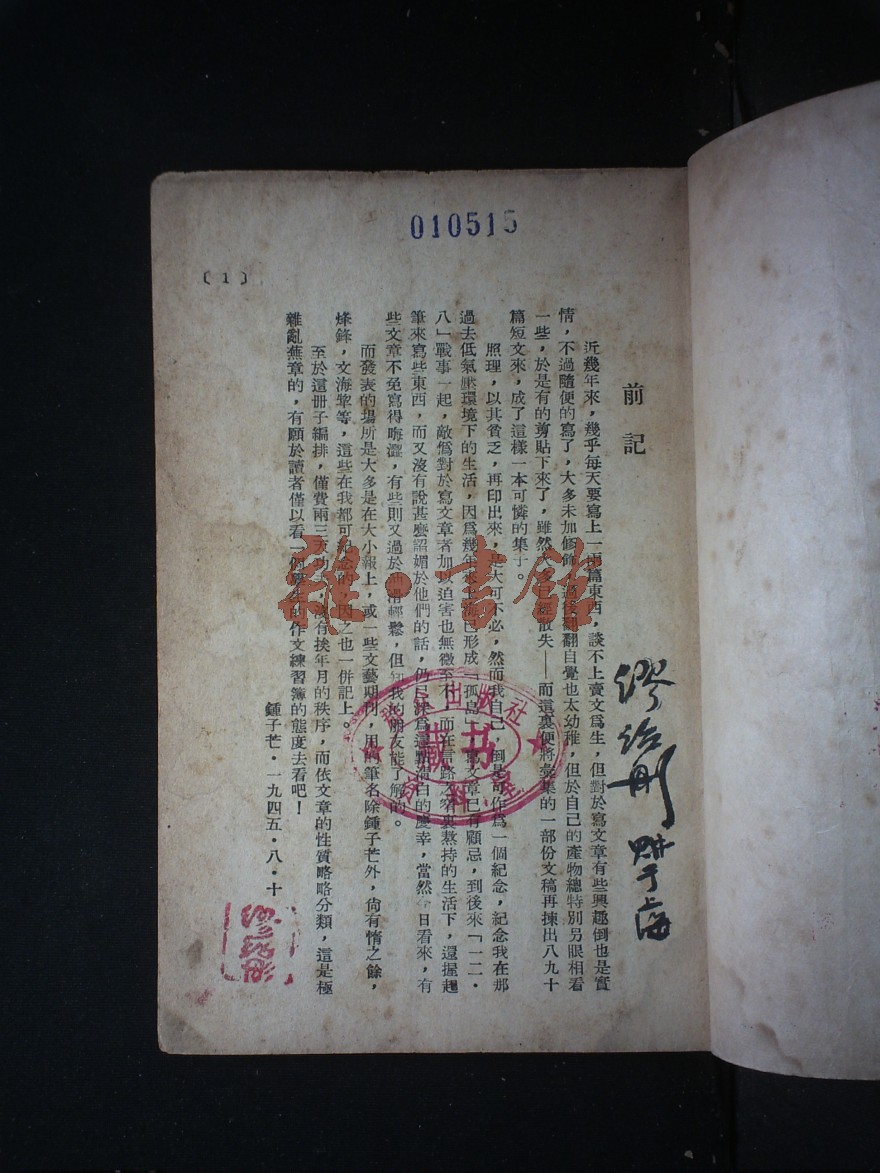 010515
〔1〕
前記
近幾年來，幾乎每天要寫上一兩篇東西，談不上賣文爲生，但對於寫文章有些興趣倒也是實
情，不過隨便的寫了，大多未加修飾，過後翻翻自覺也太幼稚，但於自己的產物總特別另眼相看
一些，於是有的剪貼下來了，雖然大多已經散失——而這裏便將彙集的一部份文稿再揀出八九十
篇短文來，成了這樣一本可憐的集子。
照理，以其貧乏，再印出來，是大可不必，然而我自己，倒是可作爲一個紀念，紀念我在那
過去低氣壓環境下的生活，因爲幾年來上海已形成「孤島」，寫文章已有顧忌，到後來「一二·
八」戰事一起，敵僞對於寫文章者加以迫害也無微至不，而在言路之窄裏熬持的生活下，還握起
筆來寫些東西，而又沒有說甚麼諂媚於他們的話，仍已深爲這點清白的慶幸，當然今日看來，有
些文章不免寫得晦澀，有些則又過於油滑輕鬆，但知我的朋友能了解的。
而發表的場所是大多是在大小報上，或一些文藝期刊，用的筆名除鍾子芒外，尙有惰之餘，
烽鋒，文海犂等，這些在我都可紀念的，因之也一併記上。
至於這册子編排，僅費兩三天功夫，沒有挨年月的秩序，而依文章的性質略略分類，這是極
雜亂蕪章的，有願於讀者僅以看一個學生的作文練習簿的態度去看吧！
鍾子芒·一九四五·八·十
于上海
出版社
藏书
資料室
雜·書館